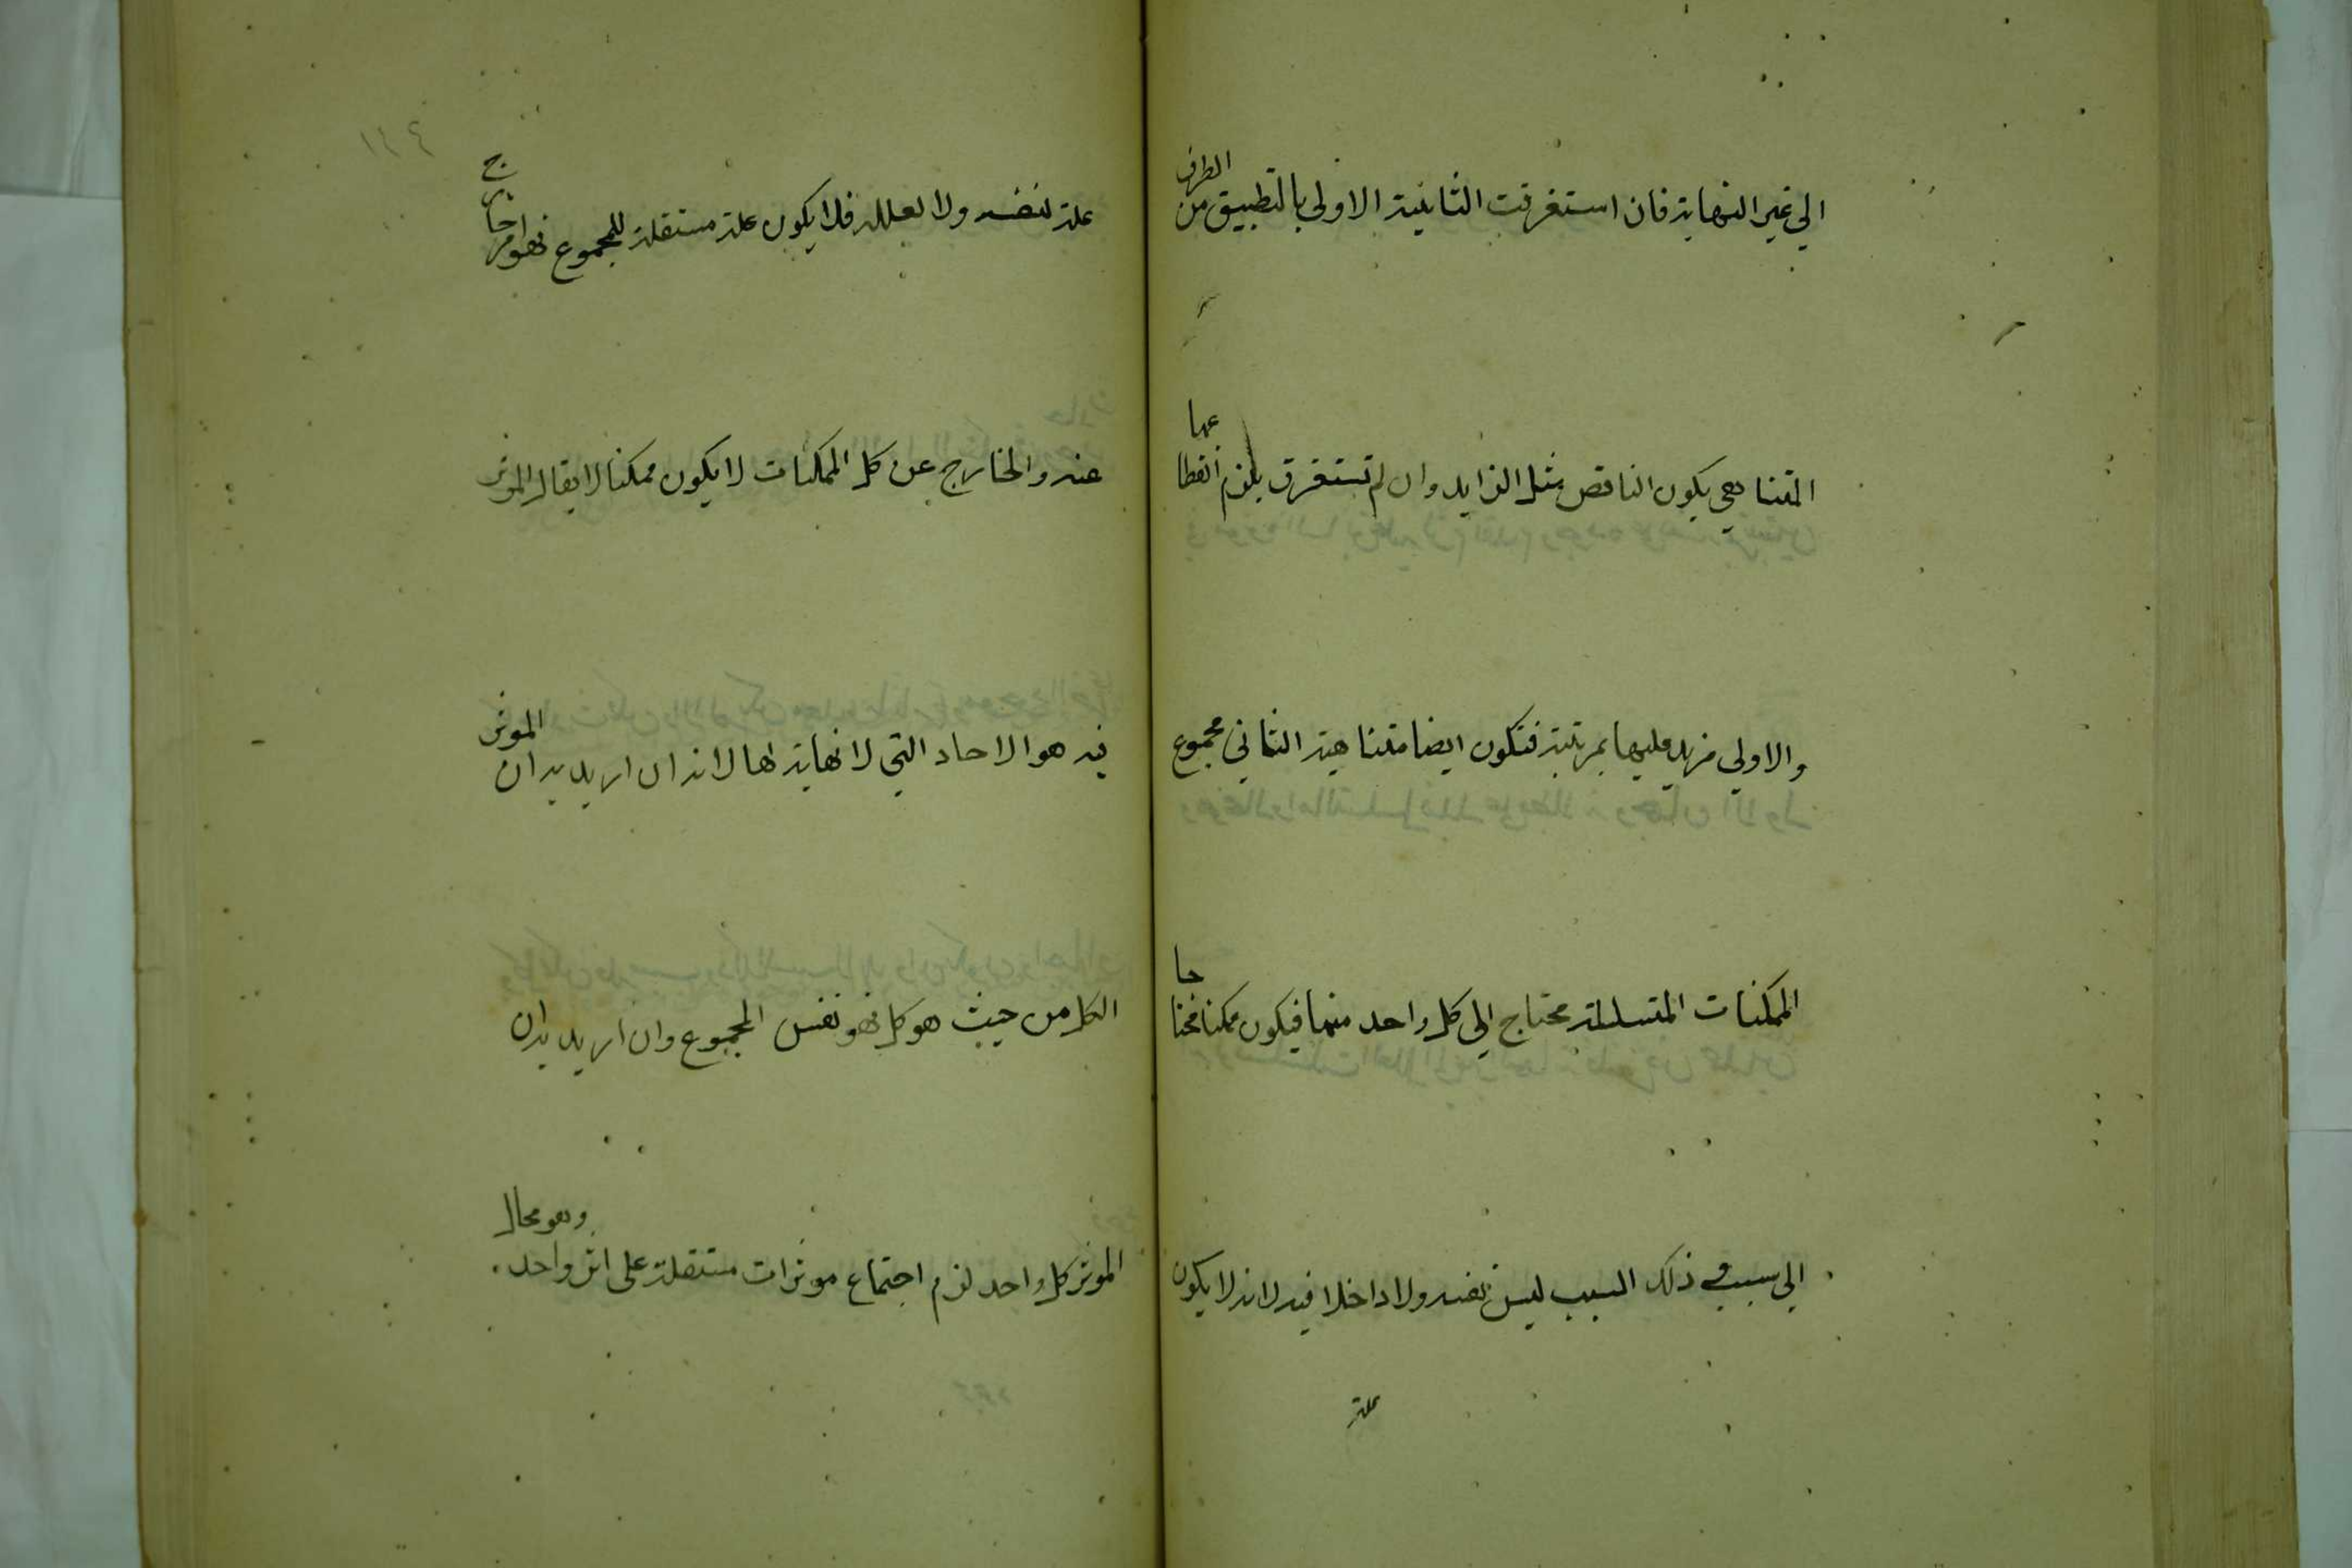 الي غير النهاية فان استغرقت الثانية الاولي بالتطبيق من الطرف
المتناهي يكون الناقص مثل الزايد وان لم تستغرق يلزم انقطاعها
والاولي مزيد عليها بمرتبة فتكون ايضا متناهية الثاني مجموع
الممكنات المتسلسلة محتاج الي كل واحد منها فيكون ممكنا محتاجا
الي سبب ذلك السبب ليس نفسه ولا داخلا فيه لانه لا يكون
علة
١١٤
علة لنفسه ولا لعلله فلا يكون علة مستقلة للمجموع فهو امر خارج
عنه والخارج عن كل الممكنات لا يكون ممكنا لا يقال الموثر
فيه هو الاحاد التي لا نهاية لها لانه ان اريد به ان الموثر
الكل من حيث هو كل فهو نفس المجموع وان اريد به ان
الموثر كل واحد لزم اجتماع موثرات مستقلة علي اثر واحد وهو محال